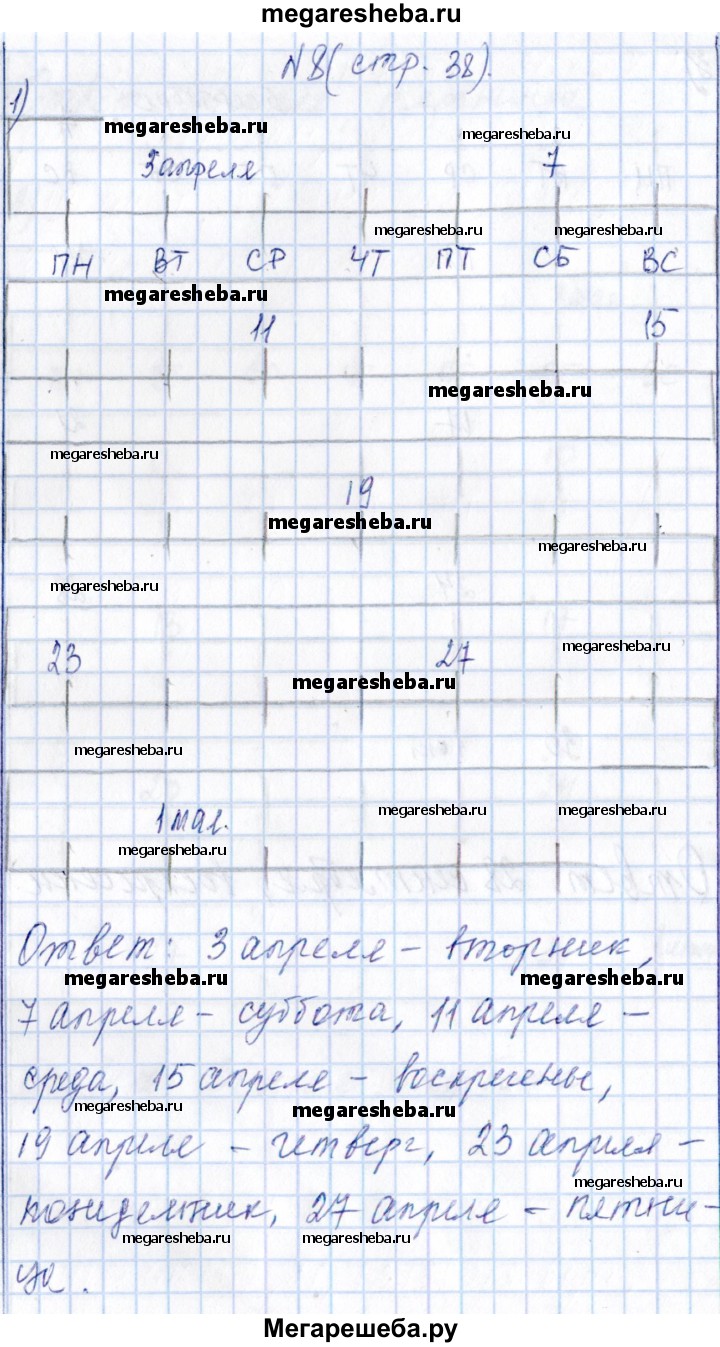 megaresheba.ru
N8 (стр. 38).
1)
megaresheba.ru
megaresheba.ru
3 апреля 7
megaresheba.ru megaresheba.ru
ПН ВТ СР ЧТ ПТ СБ ВС
megaresheba.ru
11 15
megaresheba.ru
megaresheba.ru
19
megaresheba.ru
megaresheba.ru
megaresheba.ru
23 27
megaresheba.ru
megaresheba.ru
megaresheba.ru
1 мая.
megaresheba.ru megaresheba.ru
megaresheba.ru
Ответ: 3 апреля – вторник,
megaresheba.ru megaresheba.ru
7 апреля – суббота, 11 апреля –
среда, 15 апреля – воскресенье,
megaresheba.ru megaresheba.ru
19 апреля – четверг, 23 апреля –
понидельник, 27 апреля – пятни-
megaresheba.ru megaresheba.ru
ца.
Мегарешеба.ру